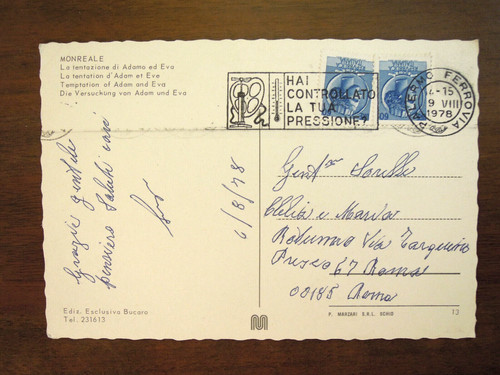 MONREALE
La tentazione di Adamo ed Eva
La tentation d'Adam et Eve
Temptation of Adam and Eva
Die Versuchung von Adam und Eva
HAI
CONTROLLATO
LA TUA
PRESSIONE?
PALERMO FERROVIA
4-15
9 VIII
1978
Grazie gentile
pensiero Saluti cari
6/8/78
Sorelle
Clelia e Maria
Via Tarquinio
Prisco 67 Roma
00185 Roma
Ediz. Esclusiva Bucaro
Tel. 231613
P. MARZARI S.R.L. SCHIO